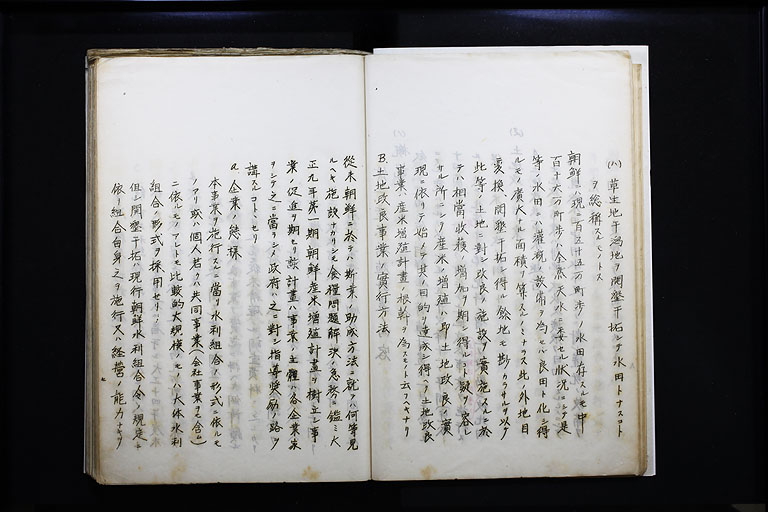 (ハ)草生地干潟地ヲ開墾干拓シテ水田トナスコト
ヲ総稱スルモノトス
朝鮮ニハ現ニ百五十五万町歩ノ水田存スルモ中
百十六万町歩ハ全然天水ニ委セル状況ニシテ是
等ノ水田ニハ灌漑ノ設備ヲ為セハ良田ト化シ得
ルモノ廣大ナル面積ヲ算スルノミナラス此ノ外地目
変換、開墾干拓シ得ル餘地モ尠カラサルヲ以テ
此等ノ土地ニ対シ改良ノ施設ヲ實施スルニ於
テハ相當收穫ノ増加ヲ期シ得ルハ疑ヲ容レ
サル所ニシテ産米ノ増殖ハ即土地改良ノ實
現ニ依リテ始メテ其ノ目的ヲ達成シ得ヘク土地改良
事業ハ産米増殖計畫ノ根幹ヲ為スモノト云フヘキナリ
B.土地改良事業ノ實行方法
從来朝鮮ニ於テハ斯業ノ助成方法ニ就テハ何等見
ルヘキ施設ナカリシモ食糧問題解決ノ急務ニ鑑ミ大
正九年第一期朝鮮産米増殖計畫ヲ樹立シ事
業ノ促進ヲ期セリ該計畫ハ事業ノ主體ハ各企業家
ヲシテ之ニ當ラシメ政府ハ之ニ對シ指導奨励ノ路ヲ
講スルコトトセリ
a.企業ノ態様
本事業ヲ施行スルニ當リ水利組合ノ形式ニ依ルモ
ノアリ或ハ個人若クハ共同事業(会社事業ヲモ含ム)
ニ依ルモノアレトモ比較的大規模ノモノハ大体水利
組合ノ形式ヲ採用セリ
但シ開墾干拓ハ現行朝鮮水利組合令ノ規定ニ
依リ組合自身之ヲ施行又ハ経営ノ能力ナキヲ
七